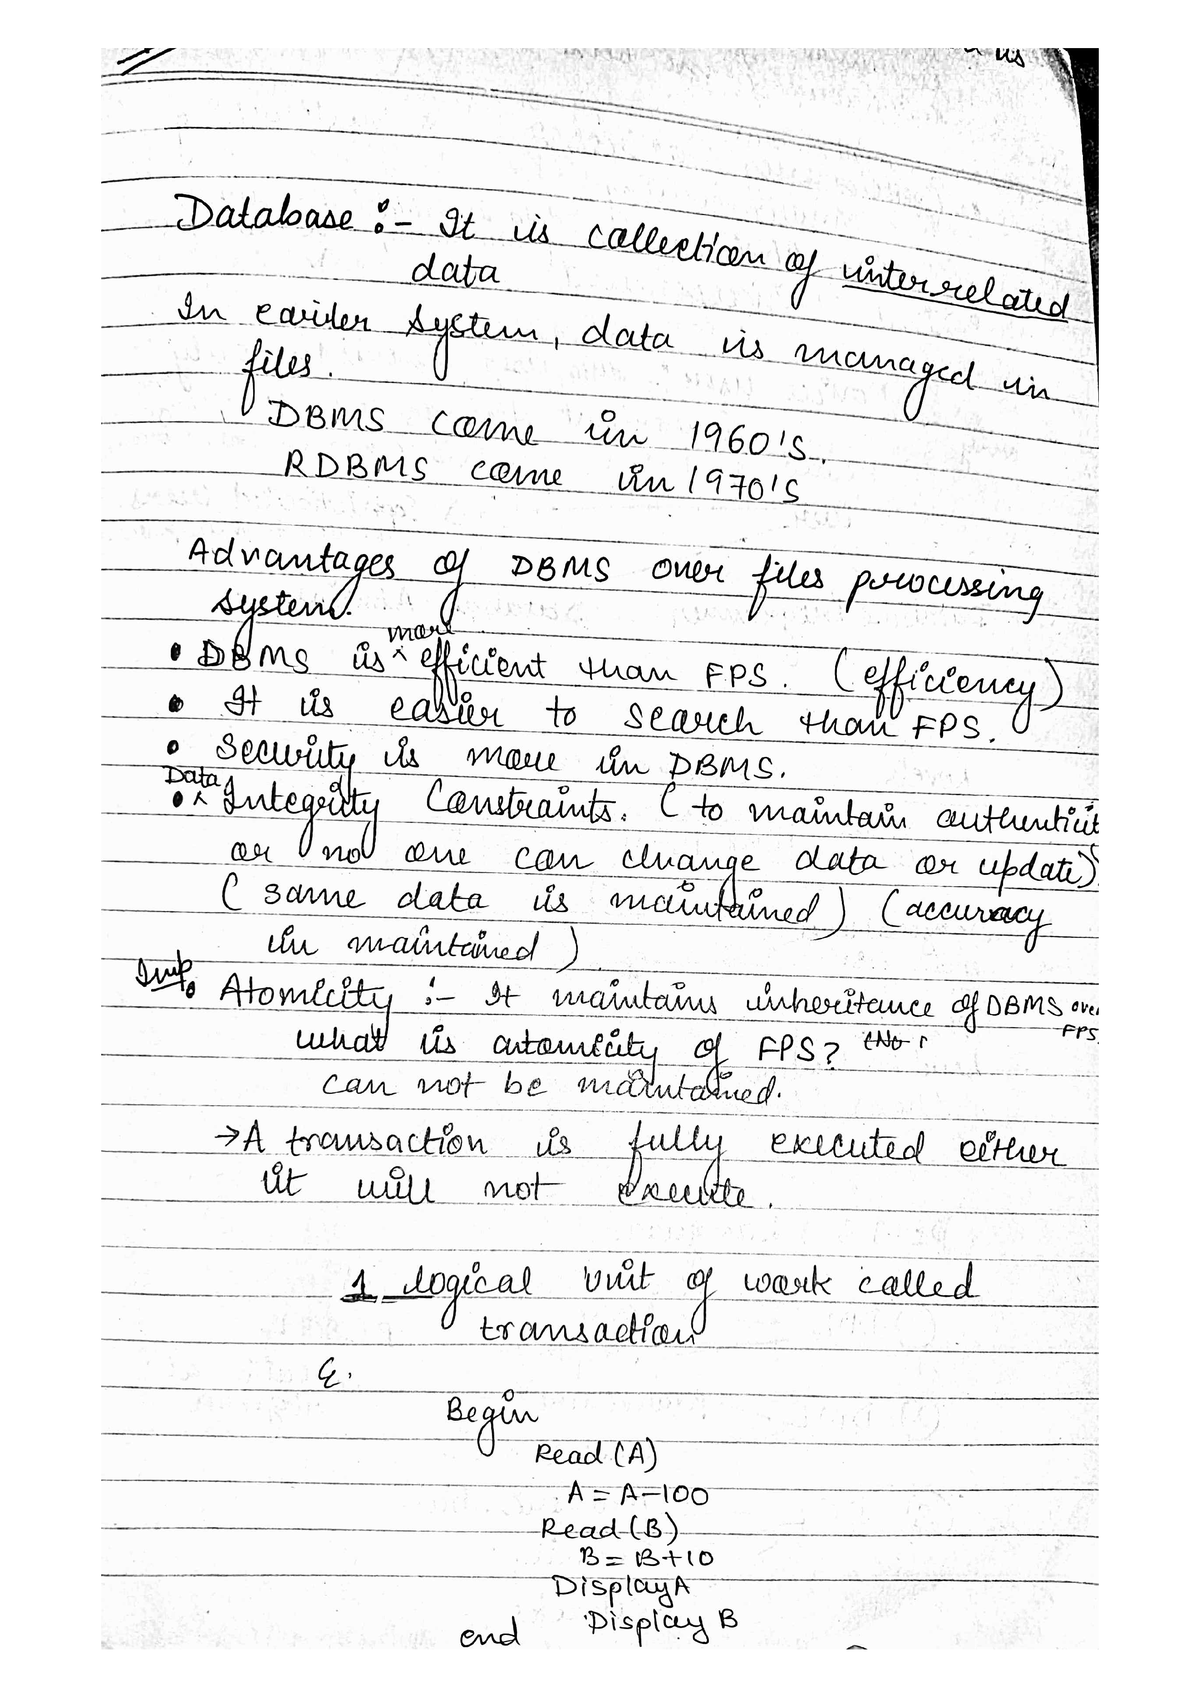 is
Database :- It is collection of interrelated
data
In earlier system, data is managed in
files.
DBMS came in 1960's.
RDBMS came in 1970's
Advantages of DBMS over files processing
system.
• DBMS is more efficient than FPS. (efficiency)
• It is easier to search than FPS.
• Security is more in DBMS.
• Data Integrity Constraints. ( to maintain authenticit
or no one can change data or update)
( same data is maintained) (accuracy
in maintained )
Imp. Atomicity :- It maintains inheritance of DBMS over
FPS.
what is atomicity of FPS?
can not be maintained.
→ A transaction is fully executed either
it will not execute.
1 logical unit of work called
transaction
Begin
Read (A)
A = A-100
Read (B)
B = B+10
Display A
Display B
end